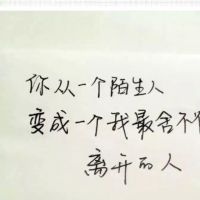 你从一个陌生人
变成一个我最舍不
离开的人